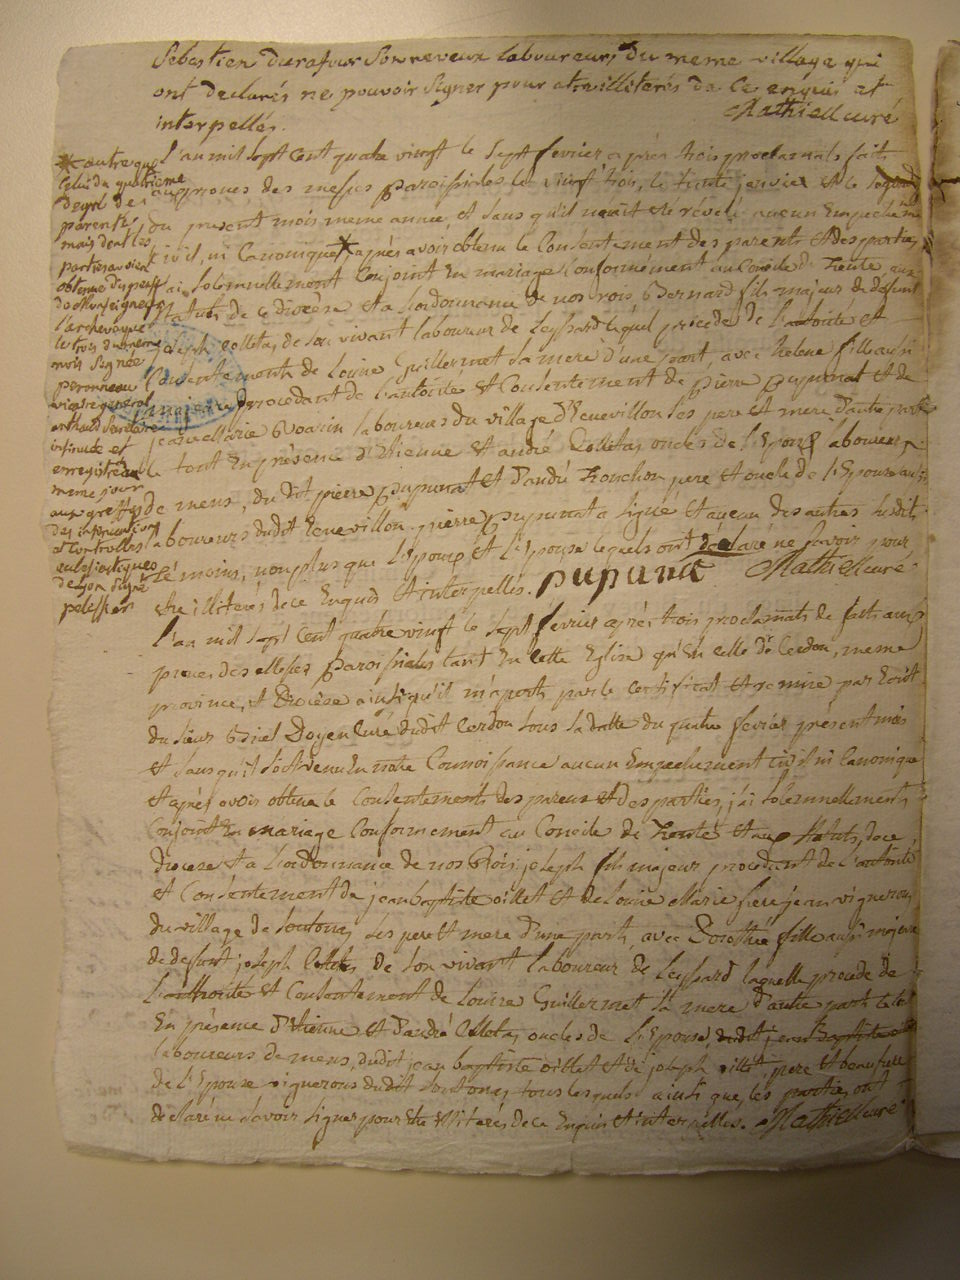 Sebastien durafour Son neveux laboureurs du meme village qui
ont declarés ne pouvoir Signer pour etre illiterés de Ce enquis et
interpellés. Mathieu curé
L'an mil Sept cent quatre vingt le Sept fevrier après trois proclamats faits
aux prones des messes Paroissiales le vingt trois, le trente janvier et le Segond
du present mois meme année et sans qu'il nous ait été révélé aucun Empecheme
Civil, ni Canonique * après avoir obtenu le Consentement des parents et des parties,
j'ai Solemnellement Conjoint En mariage Conformément au Concile de Trente, aux
Statuts de ce diocèse et a L'ordonnance de nos rois Bernard fils majeur de defunt
joseph Colletas de Son vivant laboureur de Leyssard lequel procede de L'autorite et
Consentement de Louise Guillermet Sa mere d'une part, avec helene fille aussi
majeure procedant de L'autorite et Consentement de pierre pupunat et de
jeanne Marie Gvarin laboureurs du village d' Ses pere et mere d'autre part
le tout En présence d'Etienne et andré Colletas oncles de L'Epoux laboureurs
de mens, du dit pierre pupunat et d'andré Tronchon pere et oncle de L'Epouse aussi
laboureurs dudit pierre pupunat a Signé et aucun des autres Susdits
témoins, non plus que L'Epoux et L'Epouse lesquels ont déclaré ne Savoir pour
etre illiterés de ce Enquis et interpellés. pupunat Mathieu curé
* outre que
Celui du quatrieme
degré de
parenté
mais dont les
parties avoient
obtenu dispense
de Monseigneur
L'archeveque
le trois du meme
mois Signée
peronneau
vicaire general
insinuée et
enregistrée le
meme jour
aux greffes
des insinuations
et Controlles
eclesiastiques
de Lyon Signé
pelissier
L'an mil Sept Cent quatre vingt le Sept fevrier après trois proclamats de faits aux
prones des Messes Paroissiales tant En Cette Eglise qu'En celle de Cerdon, meme
province, et Diocèse ainsi qu'il m'aparti par le certificat et remise par Ecrit
du Sieur Doyen Curé dudit Cerdon Sous la datte du quatre fevrier présent mois
et Sans qu'il Soit venu En notre Connoissance aucun Empechement civil ni Canonique
et après avoir obtenu le Consentements des parens et des parties, j'ai Solemnellement
Conjoint En mariage Conformement au Concile de Trente et aux Statuts de ce
diocese et a L'ordonnance de nos Rois, joseph fils majeur procedant de L'autorité
et Consentement de jean baptiste oillet et de Louise Marie frere jean vignerons
du village de Soutonas Ses pere et mere d'une part, avec Dorothée fille aussi majeure
de defunt joseph Colletas de Son vivant laboureur de Leyssard laquelle procede de
L'authorité et Consentement de Louise Guillermet Sa mere d'autre part le tout
En présence d'Etienne et d'andré Colletas oncles de L'Epouse, dudit jean Baptiste
laboureurs de mens, dudit jean baptiste oillet et de joseph oillet pere et beau frere
de L'Epouse vignerons dudit Soutonas tous lesquels ainsi que les parties ont
declaré ne Savoir Signer pour etre illiterés, de ce Enquis et interpellés. Mathieu curé